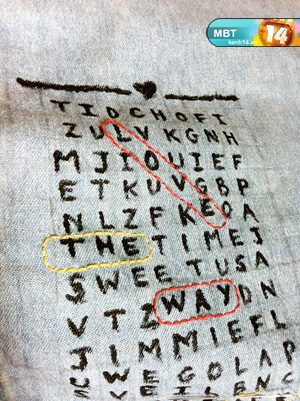 MBT 14
kenh14.vn
TIDCHOFI
ZULVKGNH
MJIOUIEF
ETKUVGBP
NLZFKEOA
THETIMEJ
SWEETUSA
VTZWAYDN
JIMMIEFL
SWEGOLAP